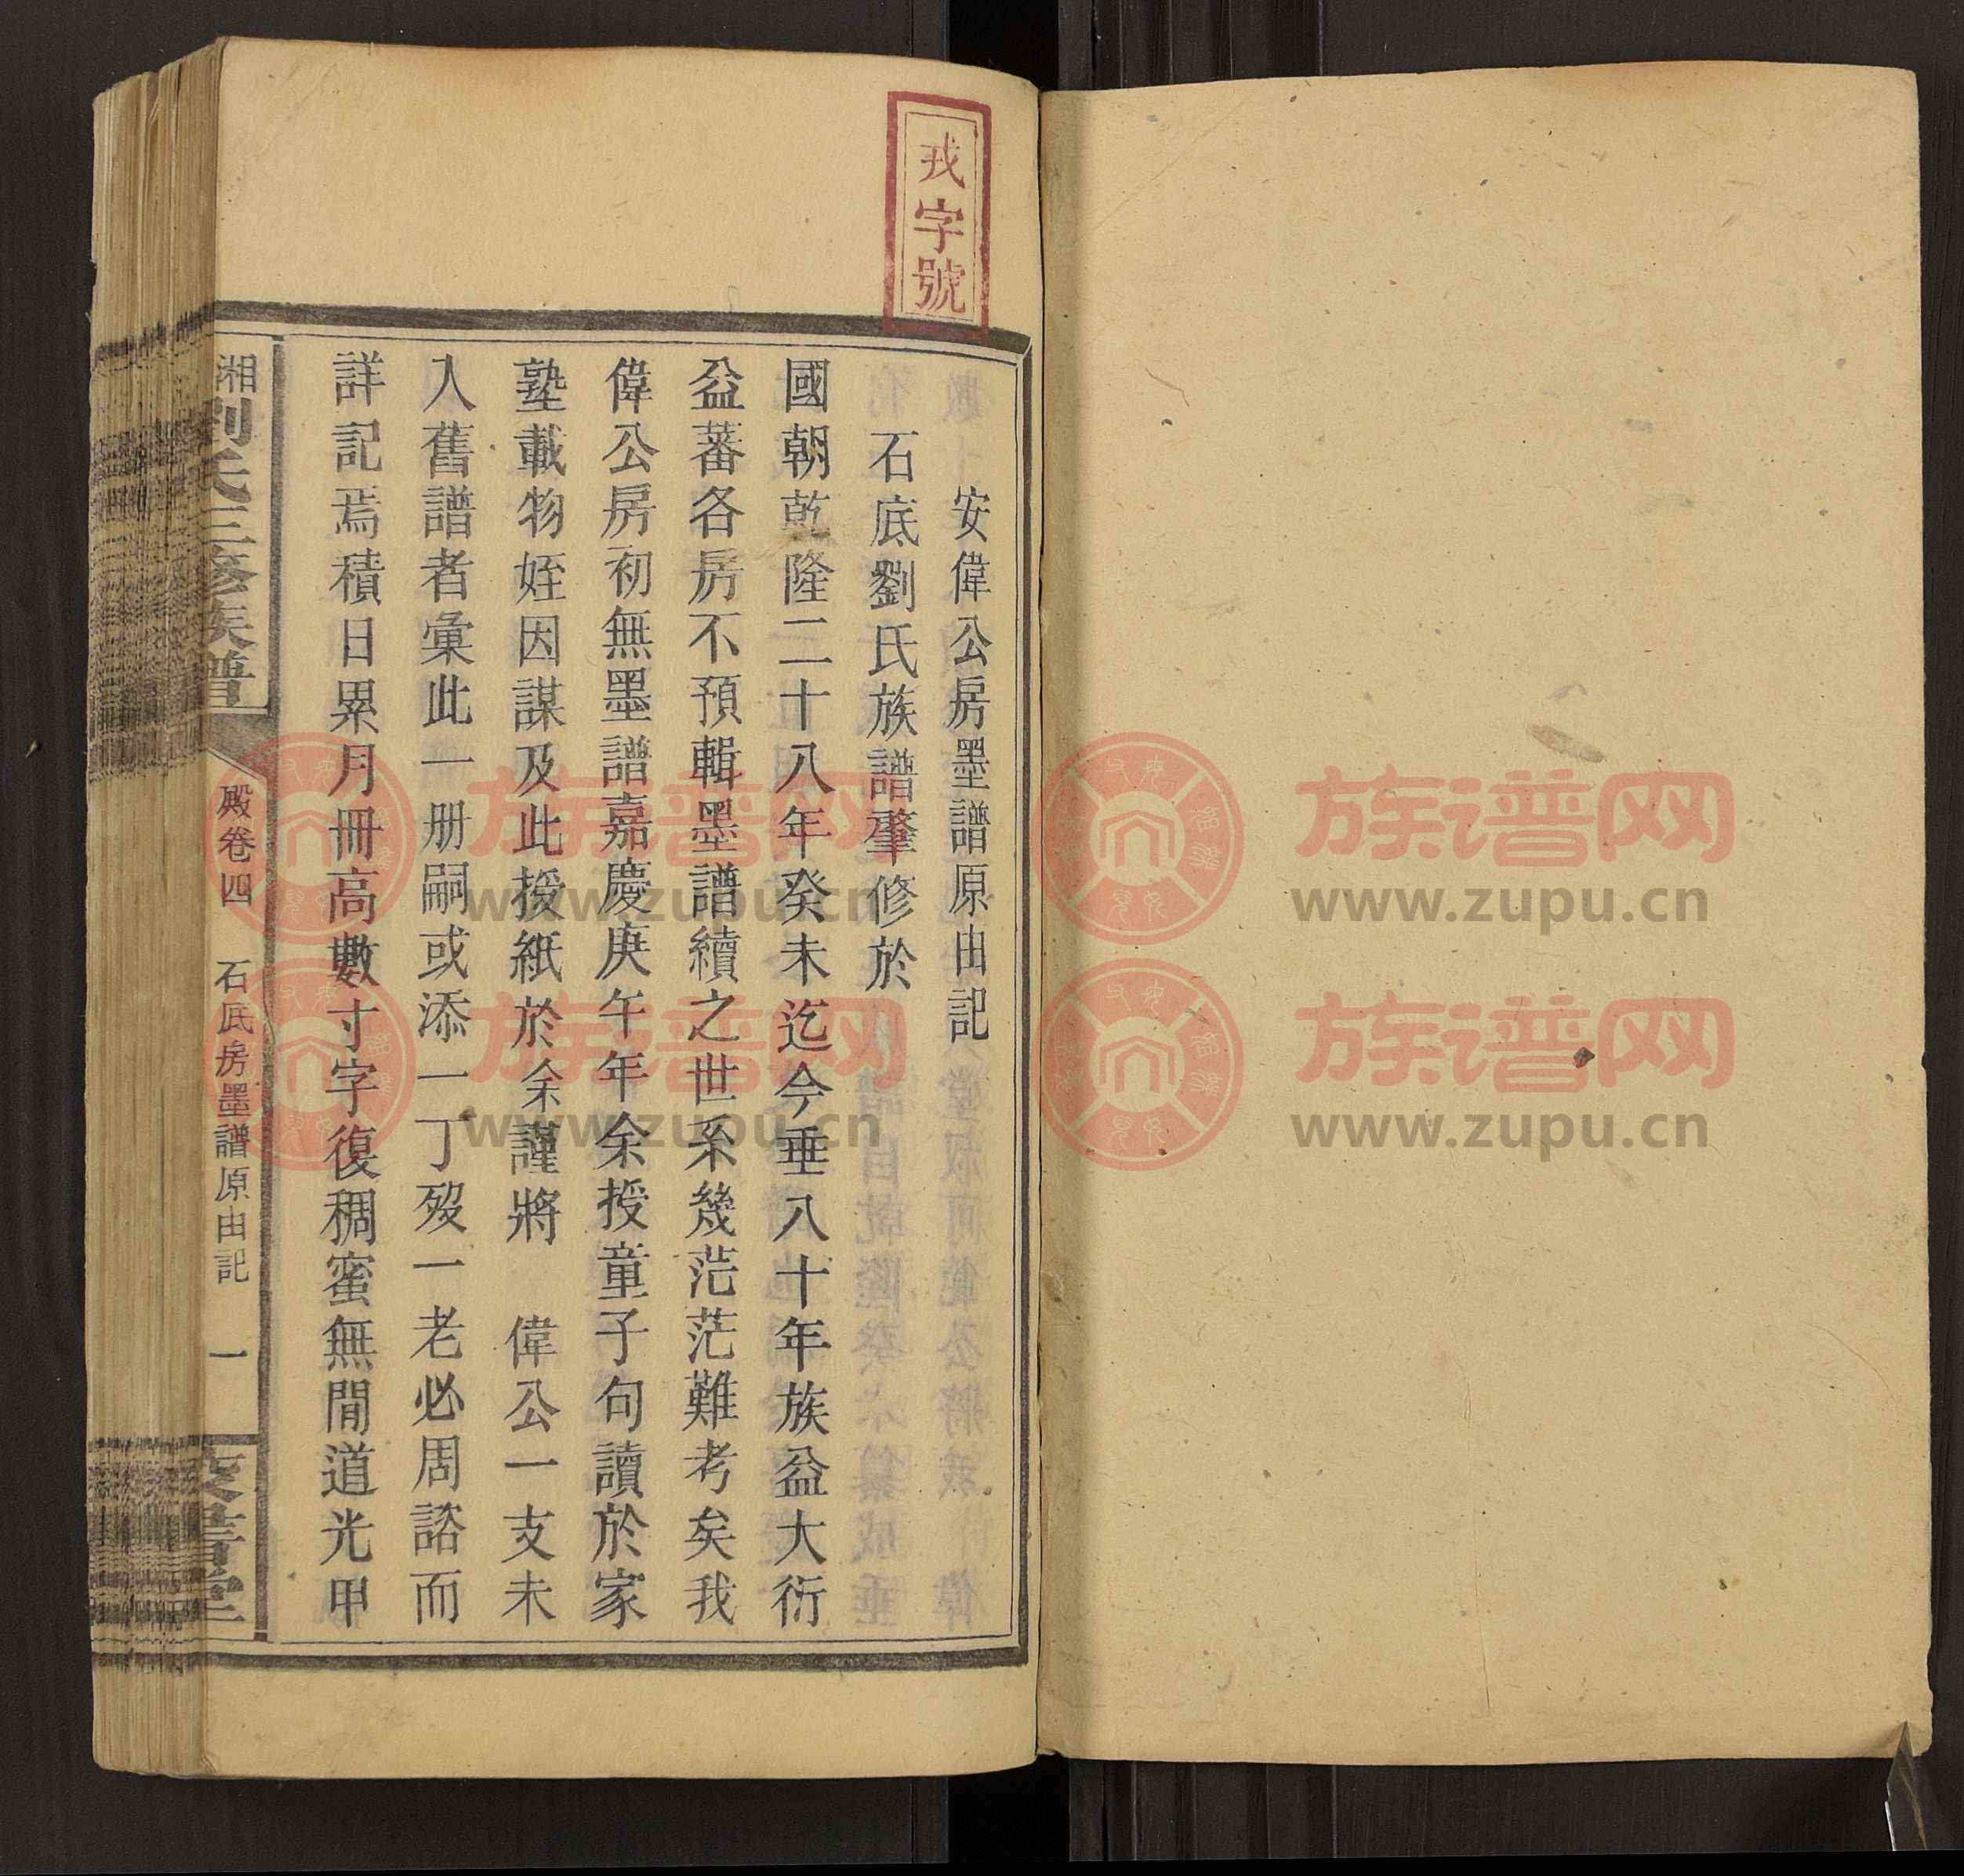 戎字號
安偉公房墨譜原由記
石底劉氏族譜肇修於
國朝乾隆二十八年癸未迄今垂八十年族益大衍
益蕃各房不預輯墨譜續之世系幾茫茫難考矣我
偉公房初無墨譜嘉慶庚午年余授童子句讀於家
塾載物姪因謀及此授紙於余謹將 偉公一支未
入舊譜者彙此一册嗣或添一丁歿一老必周諮而
詳記焉積日累月冊高數寸字復稠蜜無間道光甲
湘劉氏三修族譜
殿卷四 石底房墨譜原由記 一
族谱网
www.zupu.cn
族谱网
www.zupu.cn
族谱网
www.zupu.cn
族谱网
www.zupu.cn